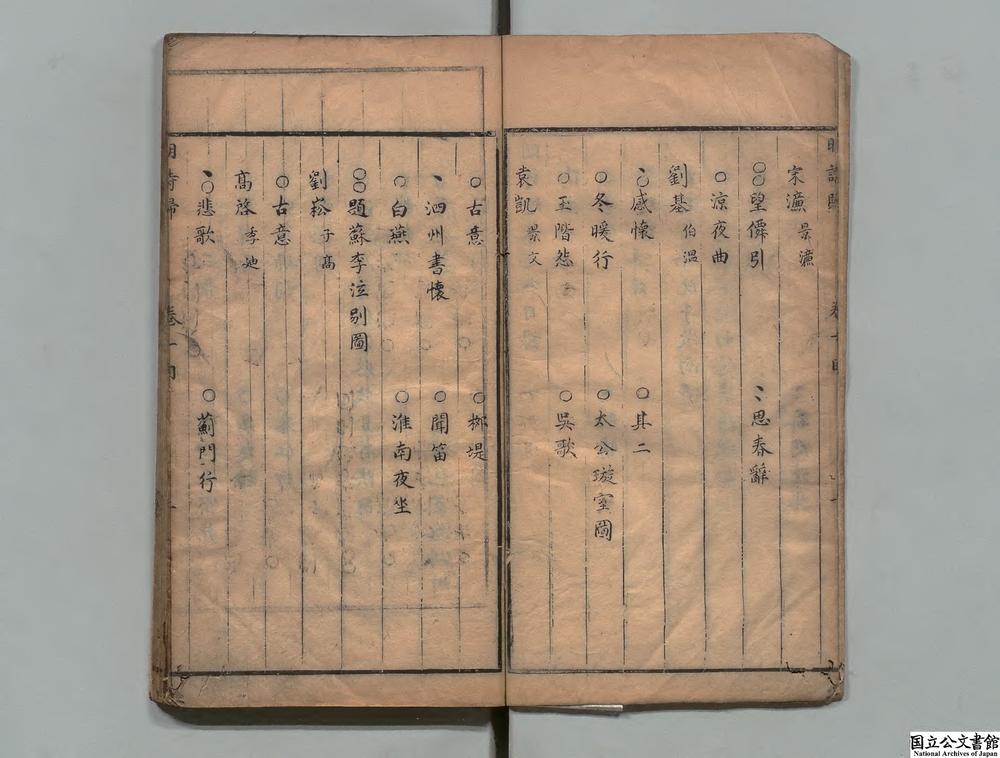 宋濂 景濂
○○望僊引 丶思春辭
○涼夜曲
劉基 伯溫
丶○感懷 ○其二
○冬暖行 ○太公璇室圖
○玉階怨 ○吳歌
袁凱 景文
○古意 ○柳堤
丶泗州書懷 ○聞笛
○白燕 ○淮南夜坐
○○題蘇李泣別圖
劉崧 子高
○古意
高啓 季迪
丶○悲歌 ○薊門行
明詩歸
国立公文書館
National Archives of Japan